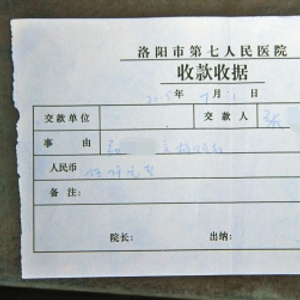 洛阳市第七人民医院
收款收据
2015年7月1日
交款单位 交款人
事由
人民币 伍仟元整
备注：
院长： 出纳：